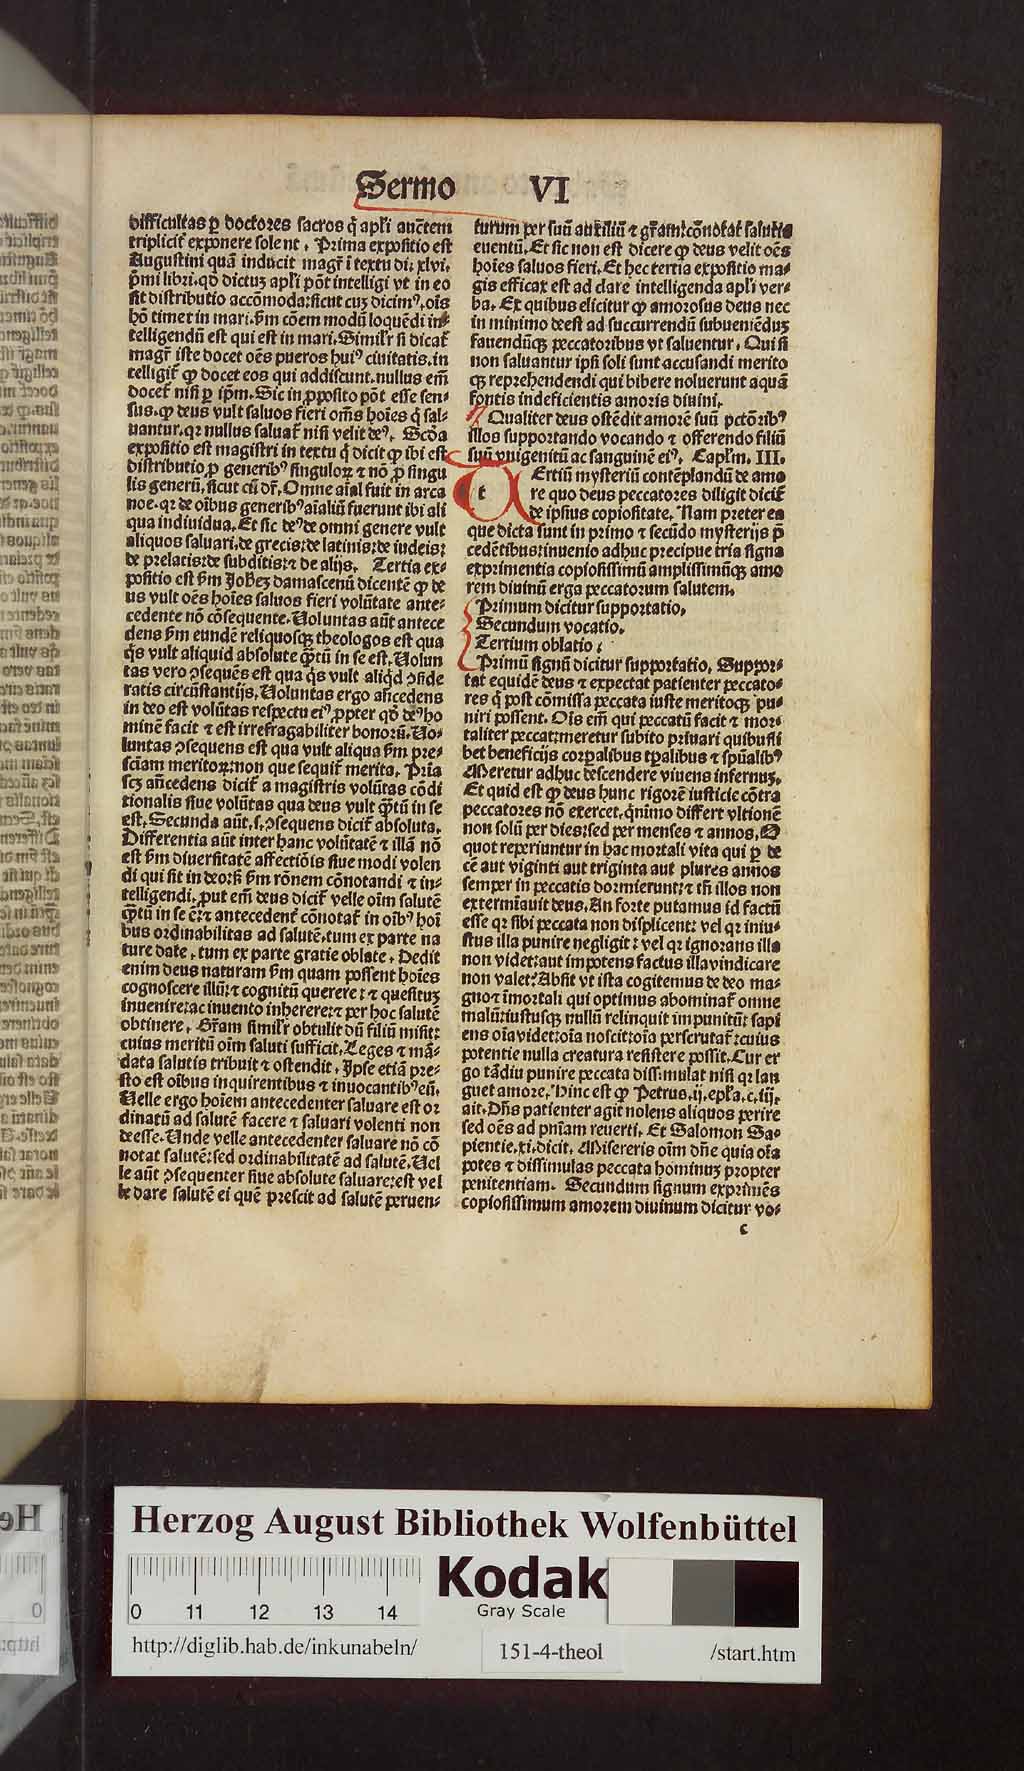 Sermo VI
difficultas ꝑ doctores sacros q̇ apłi auc̄tem
triplicit᷑ exponere solent. Prima expositio est
Augustini quā inducit magr̄ ī textu di. xlvi.
pͥmi libri. qd̓ dictuꝫ apłi pōt intelligi vt in eo
sit distributio accōmoda: sicut cuꝫ dicimꝰ. oīs
hō timet in mari. ẜm cōem modū loquēdi in⸗
telligendū est qui est in mari. Simil᷑r si dicat᷑
magr̄ iste docet oēs pueros huiꝰ ciuitatis. in
telligit᷑ ꝙ docet eos qui addiscunt. nullus em̄
docet᷑ nisi ꝑ ip̄m. Sic in ꝓposito pōt esse sen⸗
sus. ꝙ deus vult saluos fieri om̄s hoīes q̇ sal⸗
uantur. qꝛ nullus saluat᷑ nisi velit deꝰ. Scd̓a
expositio est magistri in textu q̇ dicit ꝙ ibi est
distributio ꝓ generibꝰ singuloꝝ ⁊ nō ꝓ singu
lis generū. sicut cū dr̄. Omne aīal fuit in arca
noe. qꝛ de oībus generibꝰ aīaliū fuerunt ibi ali
qua indiuidua. Et sic deꝰ de omni genere vult
aliquos saluari. de grecis: de latinis: de iudeis:
de prelatis: de subditis: ⁊ de alijs. Tertia ex⸗
positio est ẜm Joħeꝫ damascenū dicentē ꝙ de
us vult oēs hoīes saluos fieri volūtate ante⸗
cedente nō cōsequente. Uoluntas aūt antece
dens ẜm eundē reliquosqꝫ theologos est qua
q̇s vult aliquid absolute qͣꝫtū in se est. Uolun
tas vero ꝯsequēs est qua q̇s vult aliq̇d ꝯside
ratis circūstantijs. Uoluntas ergo añcedens
in deo est volūtas respectu eiꝰ ꝓpter qd̓ deꝰ ho
minē facit ⁊ est irrefragabiliter bonoꝝ. Uo⸗
luntas ꝯsequens est qua vult aliqua ẜm pre⸗
sciam meritoꝝ: non que sequit᷑ merita. Prīa
scꝫ añcedens dicit᷑ a magistris volūtas cōdi
tionalis siue volūtas qua deus vult qͣꝫtū in se
est. Secunda aūt .s. ꝯsequens dicit᷑ absoluta.
Differentia aūt inter hanc volūtatē ⁊ illā nō
est ẜm diuersitatē affectiōis siue modi volen
di qui sit in deo: sꝫ ẜm rōnem cōnotandi ⁊ in⸗
telligendi. ꝓut em̄ deus dicit᷑ velle oīm salutē
qͣꝫtū in se ē: ⁊ antecedent᷑ cōnotat᷑ in oībꝰ hoī
bus ordinabilitas ad salutē. tum ex parte na
ture date. tum ex parte gratie oblate. Dedit
enim deus naturam ẜm quam possent hoīes
cognoscere illū: ⁊ cognitū querere: ⁊ quesituꝫ
inuenire: ac inuento inherere: ⁊ per hoc salutē
obtinere. Gr̄am simil᷑r obtulit dū filiū misit:
cuius meritū oīm saluti sufficit. Leges ⁊ mā⸗
data salutis tribuit ⁊ ostendit. Ipse etiā pre⸗
sto est oībus inquirentibus ⁊ inuocantibꝰ eū.
Uelle ergo hoīem antecedenter saluare est or
dinatū ad salutē facere ⁊ saluari volenti non
deesse. Unde velle antecedenter saluare nō cō
notat salutē: sed ordinabilitatē ad salutē. Uel
le aūt ꝯsequenter siue absolute saluare: est vel
le dare salutē ei quē prescit ad salutē peruen⸗
turum per suū auxiliū ⁊ gr̄am: cōnotat salutis
euentū. Et sic non est dicere ꝙ deus velit oēs
hoīes saluos fieri. Et hec tertia expositio ma⸗
gis efficax est ad dare intelligenda apłi ver⸗
ba. Ex quibus elicitur ꝙ amorosus deus nec
in minimo deest ad succurrendū subueniēduꝫ
fauendūqꝫ peccatoribus vt saluentur. Qui si
non saluantur ipsi soli sunt accusandi merito
qꝫ reprehendendi qui bibere noluerunt aquā
fontis indeficientis amoris diuini.
Qualiter deus ostēdit amorē suū pctōribꝰ
illos supportando vocando ⁊ offerendo filiū
suū vnigenitū ac sanguinē eiꝰ. Capłm. III.
t Ertiū mysteriū contēplandū de amo
re quo deus peccatores diligit dicit᷑
de ipsius copiositate. Nam preter ea
que dicta sunt in primo ⁊ secūdo mysterijs p̄
cedētibus: inuenio adhuc precipue tria signa
exprimentia copiosissimū amplissimūqꝫ amo
rem diuinū erga peccatorum salutem.
Primum dicitur supportatio.
Secundum vocatio.
Tertium oblatio:
Primū signū dicitur supportatio. Suppor⸗
tat equidē deus ⁊ expectat patienter peccato⸗
res q̇ post cōmissa peccata iuste meritoqꝫ pu⸗
niri possent. Oīs em̄ qui peccatū facit ⁊ mor⸗
taliter peccat: meretur subito priuari quibusli
bet beneficijs corꝑalibus tꝑalibus ⁊ spūalibꝰ
Meretur adhuc descendere viuens infernuꝫ.
Et quid est ꝙ deus hunc rigorē iusticie cōtra
peccatores nō exercet. qͥnimo differt vltionē
non solū per dies: sed per menses ⁊ annos. O
quot reperiuntur in hac mortali vita qui ꝑ de
cē aut viginti aut triginta aut plures annos
semper in peccatis dormierunt: ⁊ tn̄ illos non
extermīauit deus. An forte putamus id factū
esse qꝛ sibi peccata non displicent: vel qꝛ iniu⸗
stus illa punire negligit: vel qꝛ ignorans illa
non videt: aut impotens factus illa vindicare
non valet? Absit vt ista cogitemus de deo ma⸗
gno ⁊ īmortali qui optimus abominat᷑ omne
malū: iustusqꝫ nullū relinquit impunitū: sapi
ens oīa videt: oīa noscit: oīa perscrutat᷑: cuius
potentie nulla creatura resistere possit. Cur er
go tādiu punire peccata dissimulat nisi qꝛ lan
guet amore. Hinc est ꝙ Petrus .ij. epła. c. iij.
ait. Dn̄s patienter agit nolens aliquos perire
sed oēs ad pn̄iam reuerti. Et Salomon Sa⸗
pientie. xi. dicit. Misereris oīm dn̄e quia oīa
potes ⁊ dissimulas peccata hominuꝫ propter
penitentiam. Secundum signum exprimēs
copiosissimum amorem diuinum dicitur vo⸗
c
Herzog August Bibliothek Wolfenbüttel
Kodak
Gray Scale
0 11 12 13 14
http://diglib.hab.de/inkunabeln/ 151-4-theol /start.htm